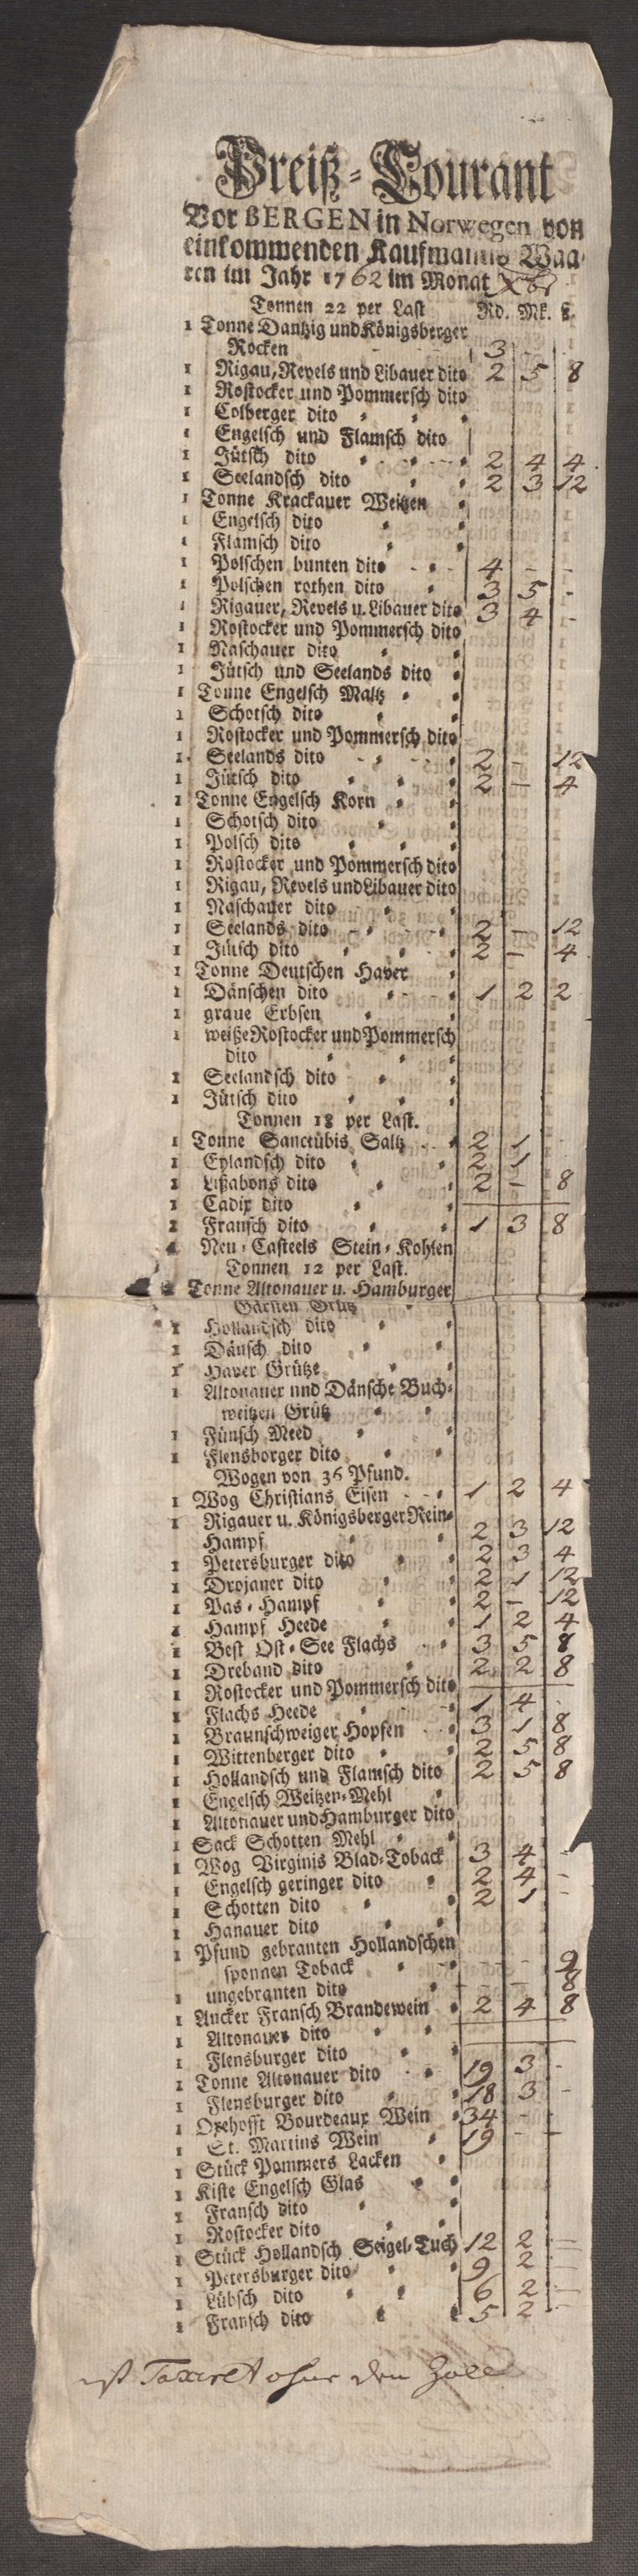 Preiß-Courant
Vor BERGEN in Norwegen von
einkommenden Kaufmanns Waa-
ren im Jahr 1762 im Monat Xbr
Tonnen 22 per Last Rd. Mk. ß.
1 Tonne Dantzig und Königsberger
Rocken 3 - -
1 Rigau, Revels und Libauer dito 2 5 8
1 Rostocker und Pommersch dito
1 Colberger dito
1 Engelsch und Flamsch dito
1 Jütsch dito 2 4 4
1 Seelandsch dito 2 3 12
1 Tonne Krackauer Weitzen
1 Engelsch dito
1 Flamsch dito
1 Polschen bunten dito 4 - -
1 Polschen rothen dito 3 5 -
1 Rigauer, Revels u. Libauer dito 3 4 -
1 Rostocker und Pommersch dito
1 Naschauer dito
1 Jütsch und Seelands dito
1 Tonne Engelsch Maltz
1 Schotsch dito
1 Rostocker und Pommersch dito
1 Seelands dito 2 - 12
1 Jütsch dito 2 - 4
1 Tonne Engelsch Korn
1 Schotsch dito
1 Polsch dito
1 Rostocker und Pommersch dito
1 Rigau, Revels und Libauer dito
1 Naschauer dito
1 Seelands dito 2 - 12
1 Jütsch dito 2 - 4
1 Tonne Deutschen Haver
1 Dänschen dito 1 2 2
1 graue Erbsen
1 weiße Rostocker und Pommersch
dito
1 Seelandsch dito
1 Jütsch dito
Tonnen 18 per Last.
1 Tonne Sanctübis Saltz 2 1
1 Eylandsch dito 2 1
1 Lißabons dito 2 - 8
1 Cadix dito
1 Fransch dito 1 3 8
1 Neu-Casteels Stein-Kohlen
Tonnen 12 per Last.
1 Tonne Altonauer u. Hamburger
Gärsten Grütz
1 Hollandsch dito
1 Dänsch dito
1 Haver Grütze
1 Altonauer und Dänsche Buch-
weitzen Grütz
1 Fünsch Meed
1 Flensborger dito
Wogen von 36 Pfund.
1 Wog Christians Eisen 1 2 4
1 Rigauer u. Königsberger Rein-
Hampf 2 3 12
1 Petersburger dito 2 3 4
1 Drojaner dito 2 1 12
1 Pas-Hampf 2 - 12
1 Hampf Heede 1 2 4
1 Best Ost-See Flachs 3 5 8
1 Dreband dito 2 2 8
1 Rostocker und Pommersch dito
1 Flachs Heede 1 4
1 Braunschweiger Hopfen 3 1 8
1 Wittenberger dito 2 5 8
1 Hollandsch und Flamsch dito 2 5 8
1 Engelsch Weitzen-Mehl
1 Altonauer und Hamburger dito
1 Sack Schotten Mehl
1 Wog Virginis Blad-Toback 3 4 -
1 Engelsch geringer dito 2 4 -
1 Schotten dito 2 1 -
1 Hanauer dito
1 Pfund gebranten Hollandschen
sponnen Toback - - 9
1 ungebranten dito - - 8
1 Ancker Fransch Brandewein 2 4 8
1 Altonauer dito
1 Flensburger dito
1 Tonne Altonauer dito 19 3 -
1 Flensburger dito 18 3 -
1 Oxehofft Bourdeaux Wein 34 - -
1 St. Martins Wein 19 - -
1 Stück Pommers Lacken
1 Kiste Engelsch Glas
1 Fransch dito
1 Rostocker dito
1 Stück Hollandsch Seigel-Tuch 12 2 -
1 Petersburger dito 9 2 -
1 Lübsch dito 6 2 -
1 Fransch dito 5 2 -
ist Taxiret ohne den Zoll